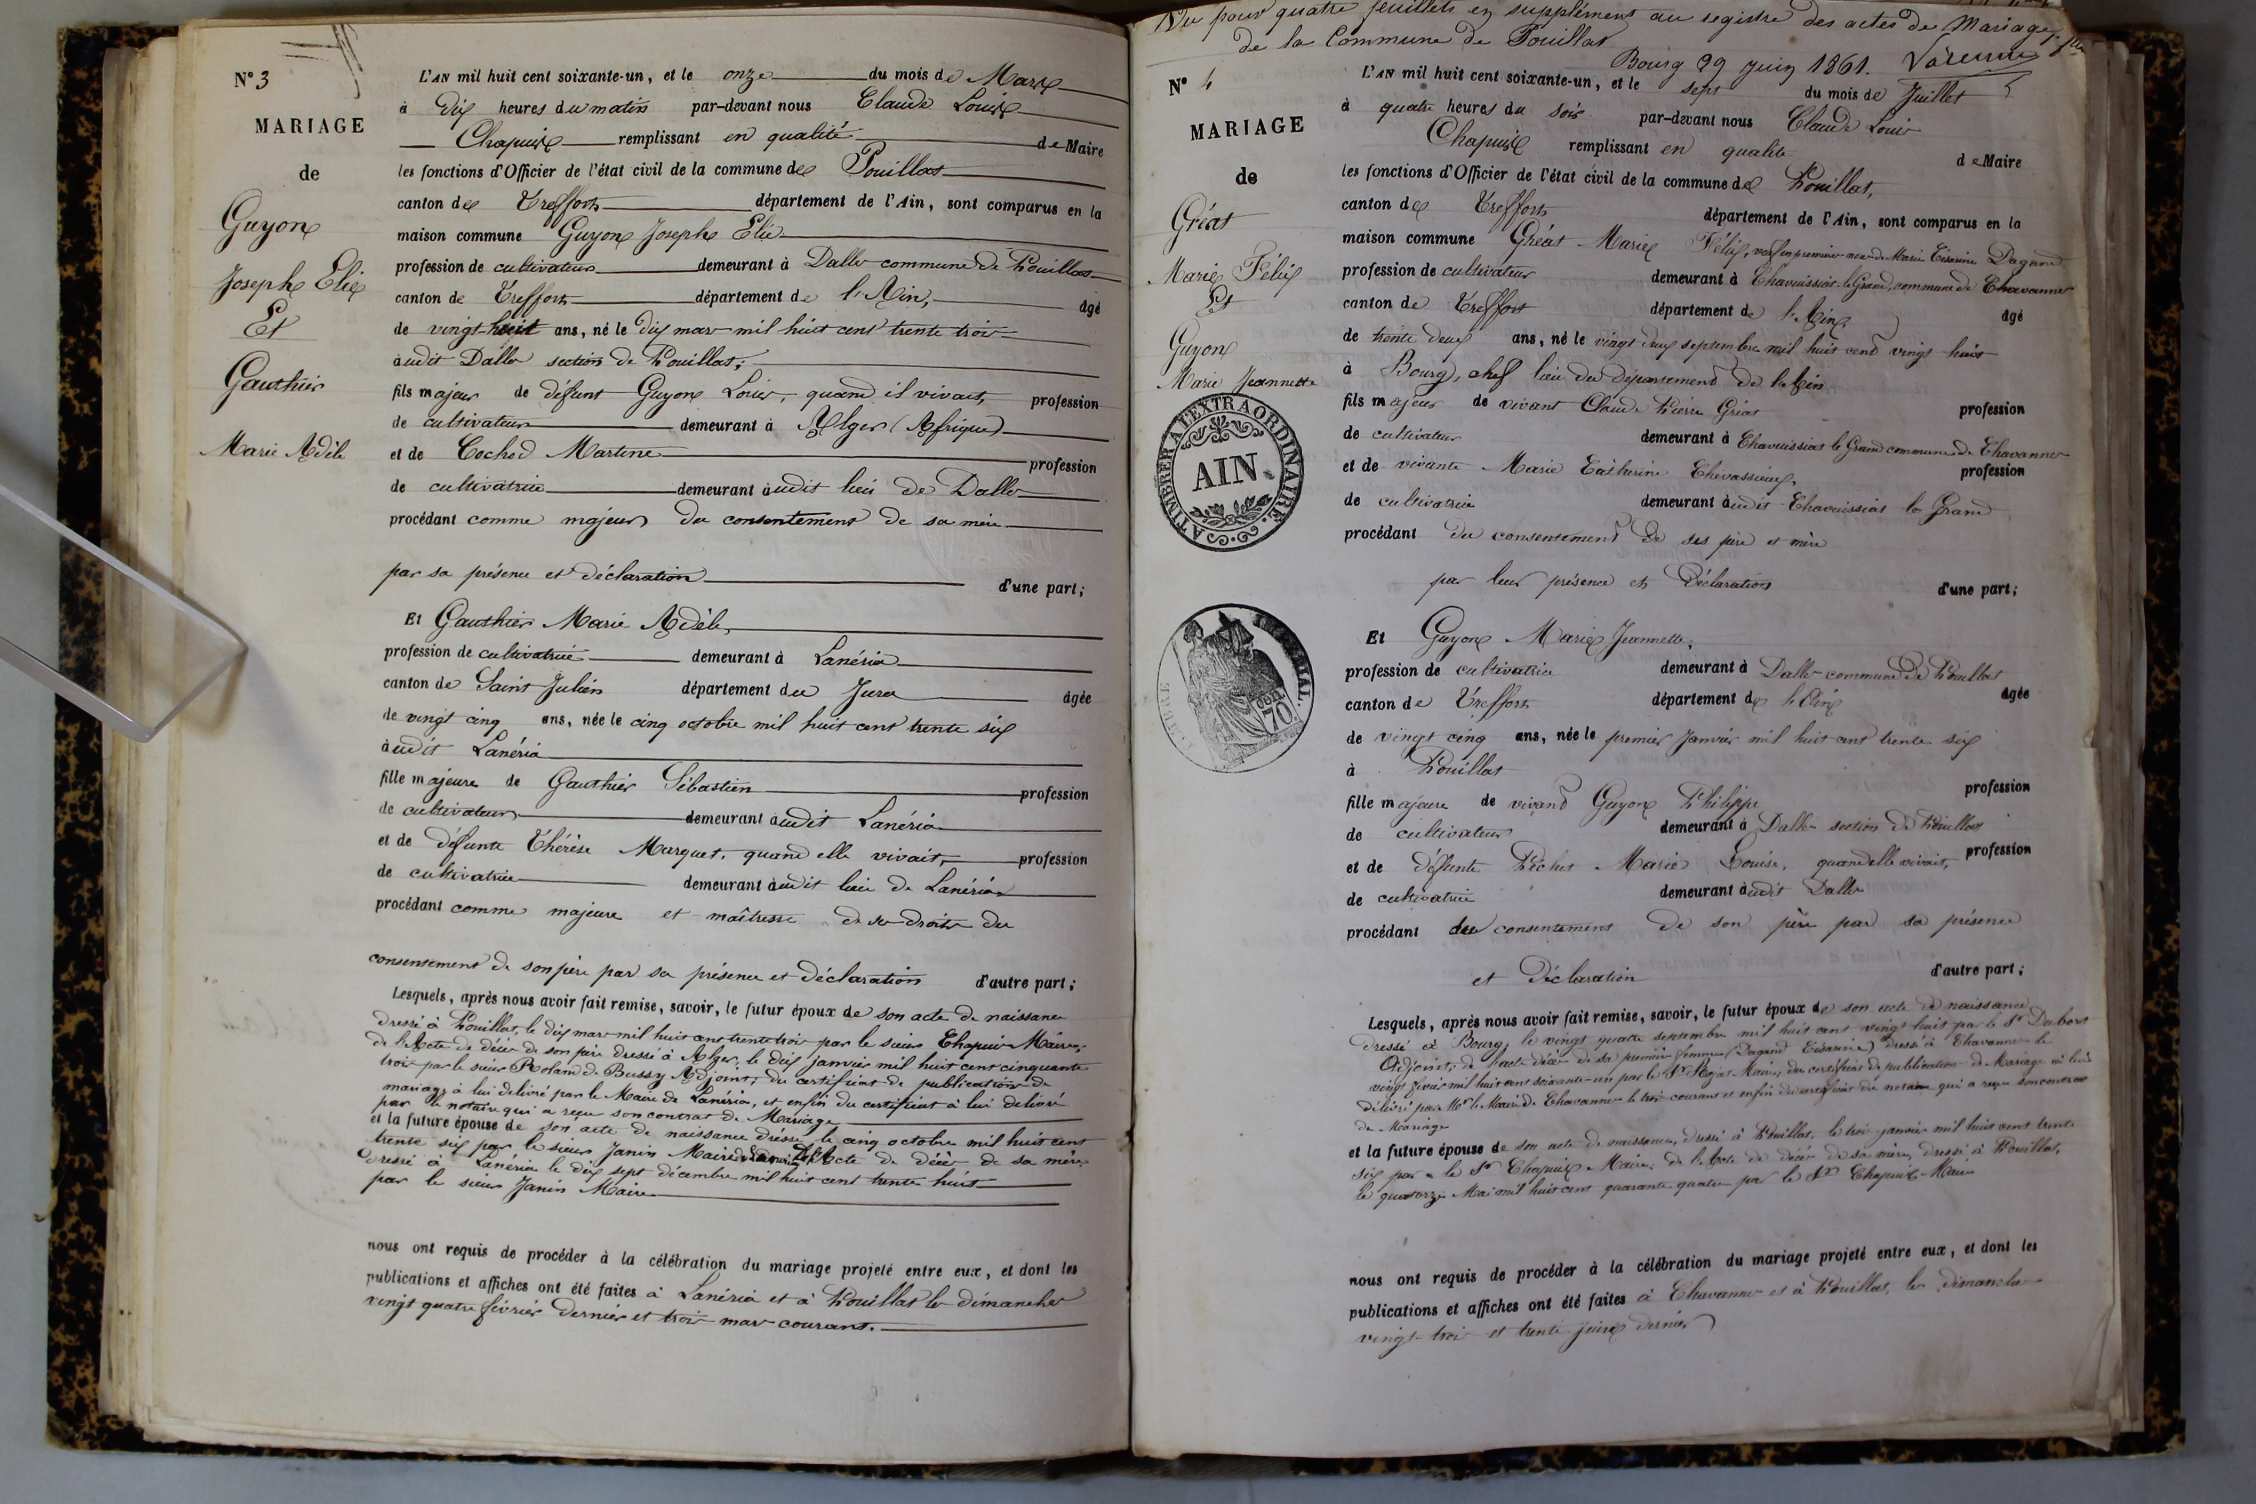 N° 3
MARIAGE
de
Guyon
Joseph Elie
Et
Gauthier
Marie Adèle
L'AN mil huit cent soixante-un, et le onze du mois de Mars
à dix heures du matin par-devant nous Claude Louis
Chapuis remplissant en qualité de Maire
les fonctions d'Officier de l'état civil de la commune de Pouillat
canton de Treffort département de l'Ain, sont comparus en la
maison commune Guyon Joseph Elie
profession de cultivateur demeurant à Dalles commune de Pouillat
canton de Treffort département de l'Ain, âgé
de vingt huit ans, né le dix mars mil huit cent trente trois
audit Dalles section de Pouillat;
fils majeur de défunt Guyon Louis, quand il vivait, profession
de cultivateur demeurant à Alger (Afrique)
et de Cochod Martine profession
de cultivatrice demeurant audit lieu de Dalles
procédant comme majeur du consentement de sa mère
par sa présence et déclaration d'une part;
Et Gauthier Marie Adèle,
profession de cultivatrice demeurant à Lanéria
canton de Saint Julien département du Jura âgée
de vingt cinq ans, née le cinq octobre mil huit cent trente six
audit Lanéria
fille majeure de Gauthier Sébastien profession
de cultivateur demeurant audit Lanéria
et de défunte Thérèse Marquet, quand elle vivait, profession
de cultivatrice demeurant audit lieu de Lanéria
procédant comme majeure et maîtresse de ses droits du
consentement de son père par sa présence et déclaration d'autre part;
Lesquels, après nous avoir fait remise, savoir, le futur époux de son acte de naissance
dressé à Pouillat, le dix mars mil huit cent trente trois par le sieur Chapuis Maire,
de l'Acte de décès de son père dressé à Alger, le dix janvier mil huit cent cinquante
trois par le sieur Roland de Bussy Adjoint; du certificat de publication de
mariage à lui délivré par le Maire de Lanéria, et enfin du certificat à lui délivré
par le notaire qui a reçu son contrat de Mariage
et la future épouse de son acte de naissance dressé le cinq octobre mil huit cent
trente six par le sieur Janin Maire de l'Acte de décès de sa mère
dressé à Lanéria le dix sept décembre mil huit cent trente huit
par le sieur Janin Maire
nous ont requis de procéder à la célébration du mariage projeté entre eux, et dont les
publications et affiches ont été faites à Lanéria et à Pouillat les dimanches
vingt quatre février dernier et trois mars courant.
Vu pour quatre feuillets en supplément au registre des actes de Mariage
de la Commune de Pouillat
Bourg 29 juin 1861.
N° 4
MARIAGE
de
Gréat
Marie Félix
Et
Guyon
Marie Jeannette
A TIMBRER A L'EXTRAORDINAIRE
AIN
TIMBRE IMPÉRIAL
70
L'AN mil huit cent soixante-un, et le sept du mois de Juillet
à quatre heures du soir par-devant nous Claude Louis
Chapuis remplissant en qualité de Maire
les fonctions d'Officier de l'état civil de la commune de Pouillat,
canton de Treffort département de l'Ain, sont comparus en la
maison commune Gréat Marie Félix, veuf en premier de Marie Césarine Dagand
profession de cultivateur demeurant à Chavuissiat le Grand, commune de Chavannes
canton de Treffort département de l'Ain, âgé
de trente deux ans, né le vingt deux septembre mil huit cent vingt huit
à Bourg, chef lieu du département de l'Ain
fils majeur de vivant Claude Pierre Gréat profession
de cultivateur demeurant à Chavuissiat le Grand commune de Chavannes
et de vivante Marie Catherine Chevassieux, profession
de cultivatrice demeurant audit Chavuissiat le Grand
procédant du consentement de ses père et mère
par leur présence et Déclaration d'une part;
Et Guyon Marie Jeannette,
profession de cultivatrice demeurant à Dalles commune de Pouillat
canton de Treffort département de l'Ain âgée
de vingt cinq ans, née le premier Janvier mil huit cent trente six
à Pouillat
fille majeure de vivant Guyon Philippe profession
de cultivateur demeurant à Dalles section de Pouillat
et de défunte Péchet Marie Louise, quand elle vivait, profession
de cultivatrice demeurant audit Dalles
procédant du consentement de son père par sa présence
et Déclaration d'autre part;
Lesquels, après nous avoir fait remise, savoir, le futur époux de son acte de naissance
dressé à Bourg, le vingt quatre septembre mil huit cent vingt huit par le Sr Debost
Adjoint; de l'acte décès de sa première femme (Dagand Césarine) dressé à Chavannes le
vingt mil huit cent soixante-un par le Sr Maire, du certificat de publication de Mariage à lui
délivré par Mr le Maire de Chavannes le trois courant et enfin du certificat du notaire qui a reçu son contrat
de Mariage
et la future épouse de son acte de naissance, dressé à Pouillat, le trois janvier mil huit cent trente
six par le Sr Chapuis Maire; de l'Acte de décès de sa mère, dressé à Pouillat,
le quatorze Mai mil huit cent quarante quatre par le Sr Chapuis Maire
nous ont requis de procéder à la célébration du mariage projeté entre eux, et dont les
publications et affiches ont été faites à Chavannes et à Pouillat, les dimanches
vingt-trois et trente juin dernier